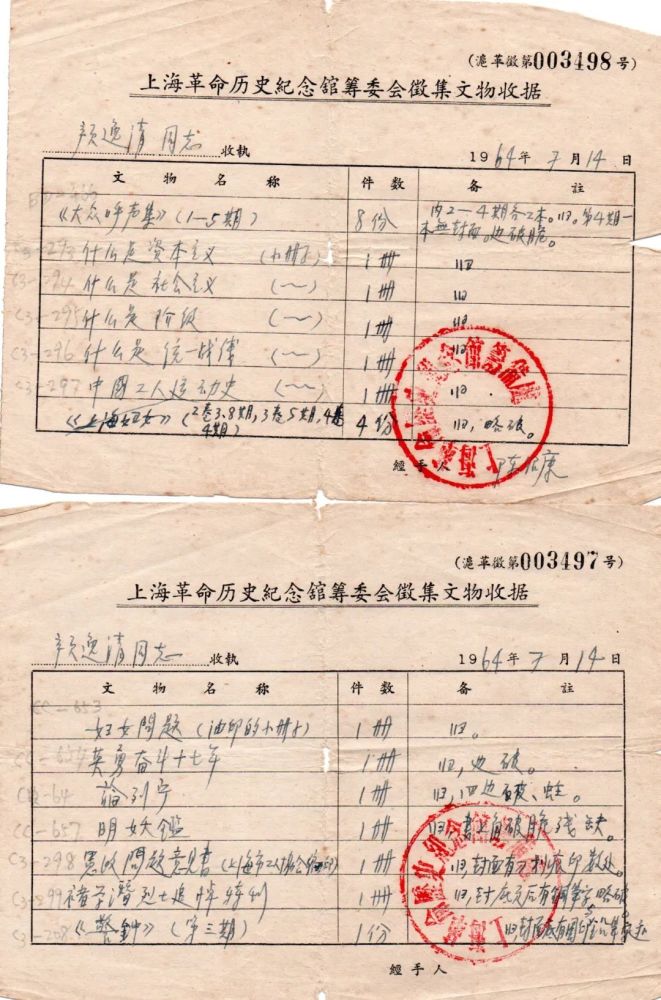 (滬革徵第003498号)
上海革命历史紀念館筹委会徵集文物收据
顾逸清同志 收执
1964年7月14日
文物名称 件数 备註
《大众呼声集》(1-5期) 8份 内2-4期各2本。旧。第4期一本無封面。边破脆。
C3-293 什么是资本主义 (小册子) 1册 旧
C3-294 什么是社会主义 (〃) 1册 旧
C3-295 什么是阶级 (〃) 1册 旧
C3-296 什么是统一战线 (〃) 1册 旧
C3-297 中國工人运动史 (〃) 1册 旧.
《上海妇女》(2卷3.8期,3卷5期,4卷4期) 4份 旧,略破。
經手人
(滬革徵第003497号)
上海革命历史紀念館筹委会徵集文物收据
顾逸清同志 收執
1964年7月14日
文物名称 件数 备註
CC-653
妇女問題(油印的小册子) 1册 旧。
英勇奋斗十七年 1册 旧,边破。
論列宁 1册 旧,四边破、蛀。
CC-657 明妖鑑 1册 角破脆残缺。
C3-298 宪政問題意見書 1册 旧,封面有
烈士追悼特刊 1册 旧,封底
《警鈡》(第三期) 1份
經手人